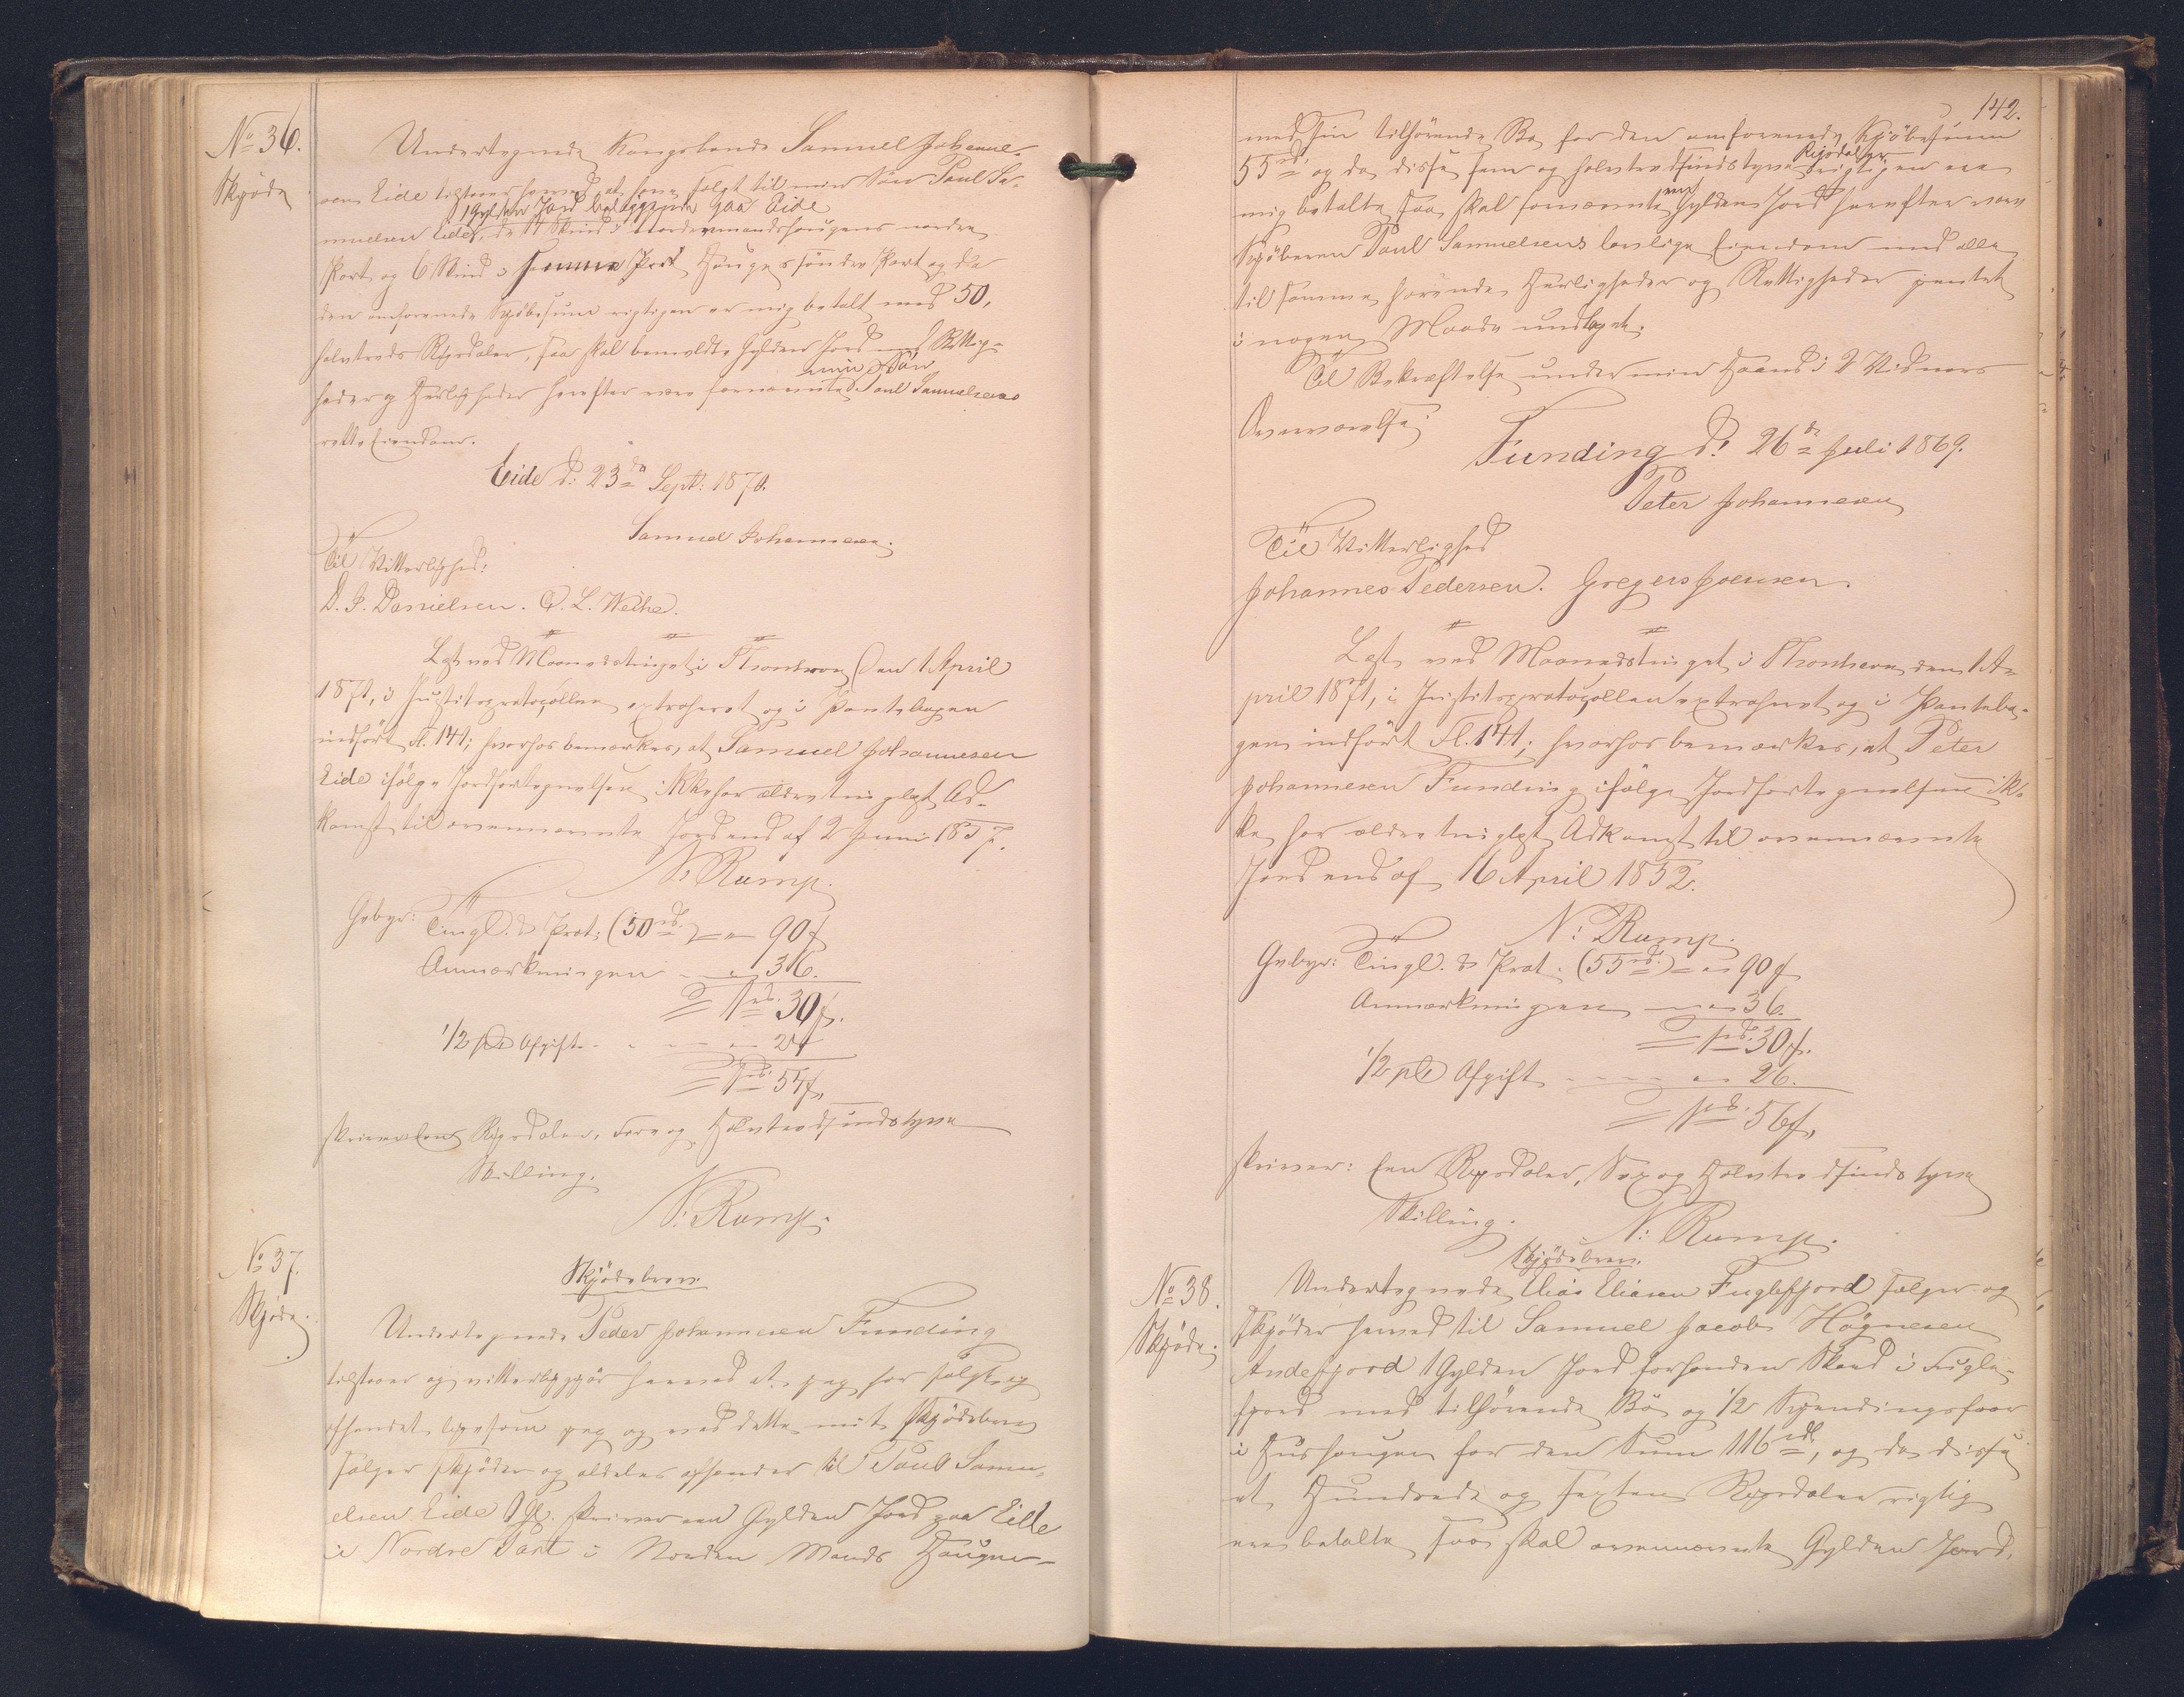 No 36.
Skjøde
Undertegnede Kongsbonde Samuel Johanne-
sen Eide tilstaaer herved at have solgt til min Søn Paul Sa-
1 Gylden Jord beliggende paa Eide
muelsen Eide, de 14 Skind i Nordenmandshaugens nordre
Part og 6 Skind i samme Hauges søndre Part og da
den omforenede Kjøbesum rigtigen er mig betalt med 50,
halvtreds Rigsdaler, saa skal bemeldte Gylden Jord med Rettig-
min Søn
heder og Herligheder herefter være fornævnte Paul Samuelsens
rette Eiendom.
Eide d: 23de Septr: 1870.
Samuel Johannesen.
Til Vitterlighed:
D. J. Danielsen. O. L. Weihe.
Læst ved Maanedstinget i Thorshavn den 1 April
1871, i Justitsprotocollen extraheret og i Pantebogen
indført Fl. 141; hvorhos bemærkes, at Samuel Johannesen
Eide ifølge Jordfortegnelsen ikke har ældre tinglæst Ad-
komst til ovennævnte Jord end af 2 Juni 1857.
N: Rump.
Gebyr: Tingl. & Prot: (50rd.) = " 90 s
Anmærkningen - " 36.
= 1rd. 30 s.
1/2 pCt Afgift - - - " 24
= 1rd. 54 s,
skriver Een Rigsdaler, Fire og Halvtredsindstyve
Skilling.
N: Rump.
No 37.
Skjøde.
Skjødebrev.
Undertegnede Peder Johannesen Funding
tilstaaer og vitterliggjør herved at jeg har solgt og
afhændet ligesom jeg og ved dette mit Skjødebrev
sælger skjøder og aldeles afhænder til Paul Samu-
elsen Eide 1 Gl. skriver een Gylden Jord paa Eide
i Nordre Part i Norden Mands Haugen
142.
med sin tilhørende Bø for den omforenede Kjøbesum
Rigsdaler
55rd. og da disse fem og halvtredsindstyve rigtigen ere
mig betalte saa skal fornævnte Gylden Jord herefter være
Kjøberen Paul Samuelsens lovlige Eiendom med alle
til samme hørende Herligheder og Rettigheder jntet
i nogen Maade undtaget.
Til Bekræftelse under min Haand i 2 Vidners
Overværelse
Funding d: 26de Juli 1869.
Peter Johannesen
Til Vitterlighed
Johannes Pedersen. Gregers Joensen.
Læst ved Maanedstinget i Thorshavn den 1 A-
pril 1871, i Justitsprotocollen extraheret og i Pantebo-
gen indført Fl. 141; hvorhos bemærkes, at Peter
Johannesen Funding ifølge Jordfortegnelsen ik-
ke har ældre tinglæst Adkomst til ovennævnte
Jord end af 16 April 1852.
N: Rump.
Gebyr: Tingl. & Prot. (55rd.) = " 90 s
Anmærkningen - " 36.
= 1rd. 30 s.
1/2 pCt Afgift - - - " 26.
= 1rd. 56 s,
skriver: Een Rigsdaler, Sex og Halvtredsindstyve
Skilling.
N: Rump.
No 38.
Skjøde.
Skjødebrev.
Undertegnede Elias Eliasen Fuglefjord sælger og
skjøder herved til Samuel Jacob Høgnesen
Andefjord 1 Gylden Jord i Fugle-
fjord med tilhørende Bø og 1/2
i Hushaugen for den Sum 116rdl., og da disse
et Hundrede og sexten Rigsdaler rigtig
ere betalte saa skal ovennævnte Gylden Jord,